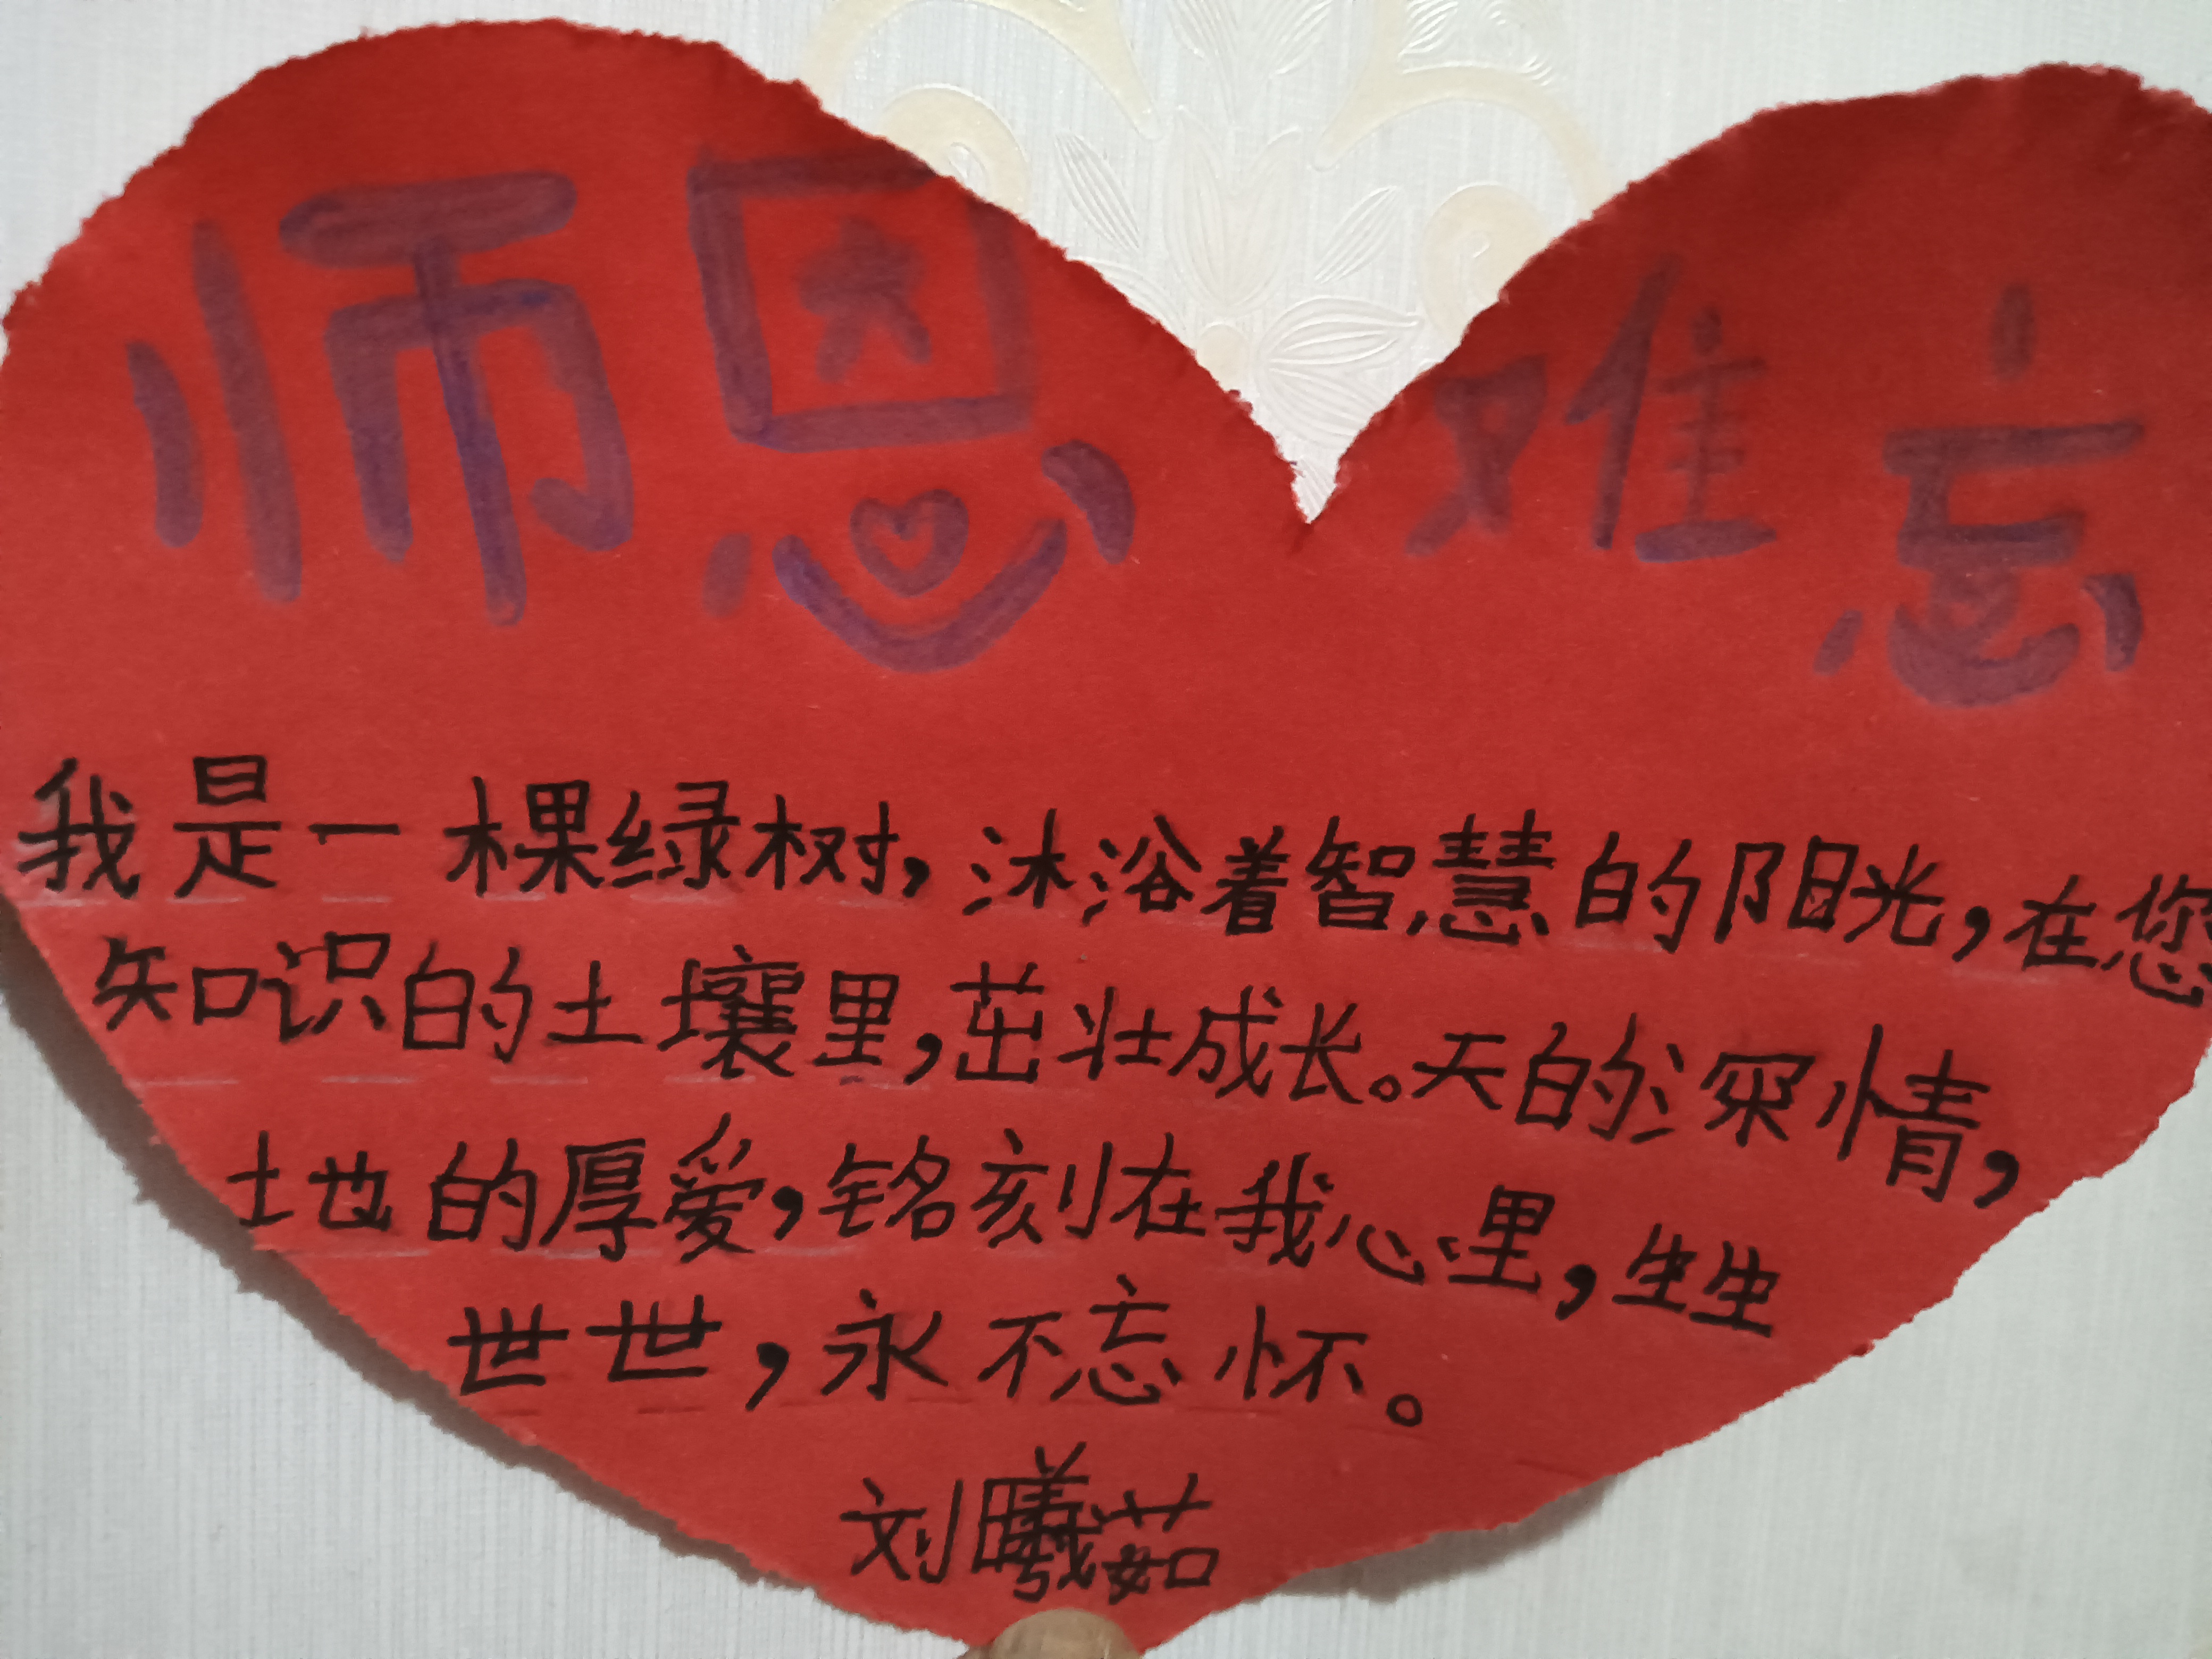 师恩难忘
我是一棵绿树，沐浴着智慧的阳光，在您
知识的土壤里，茁壮成长。天的深情，
土也的厚爱，铭刻在我心里，生生
世世，永不忘怀。
刘曦茹